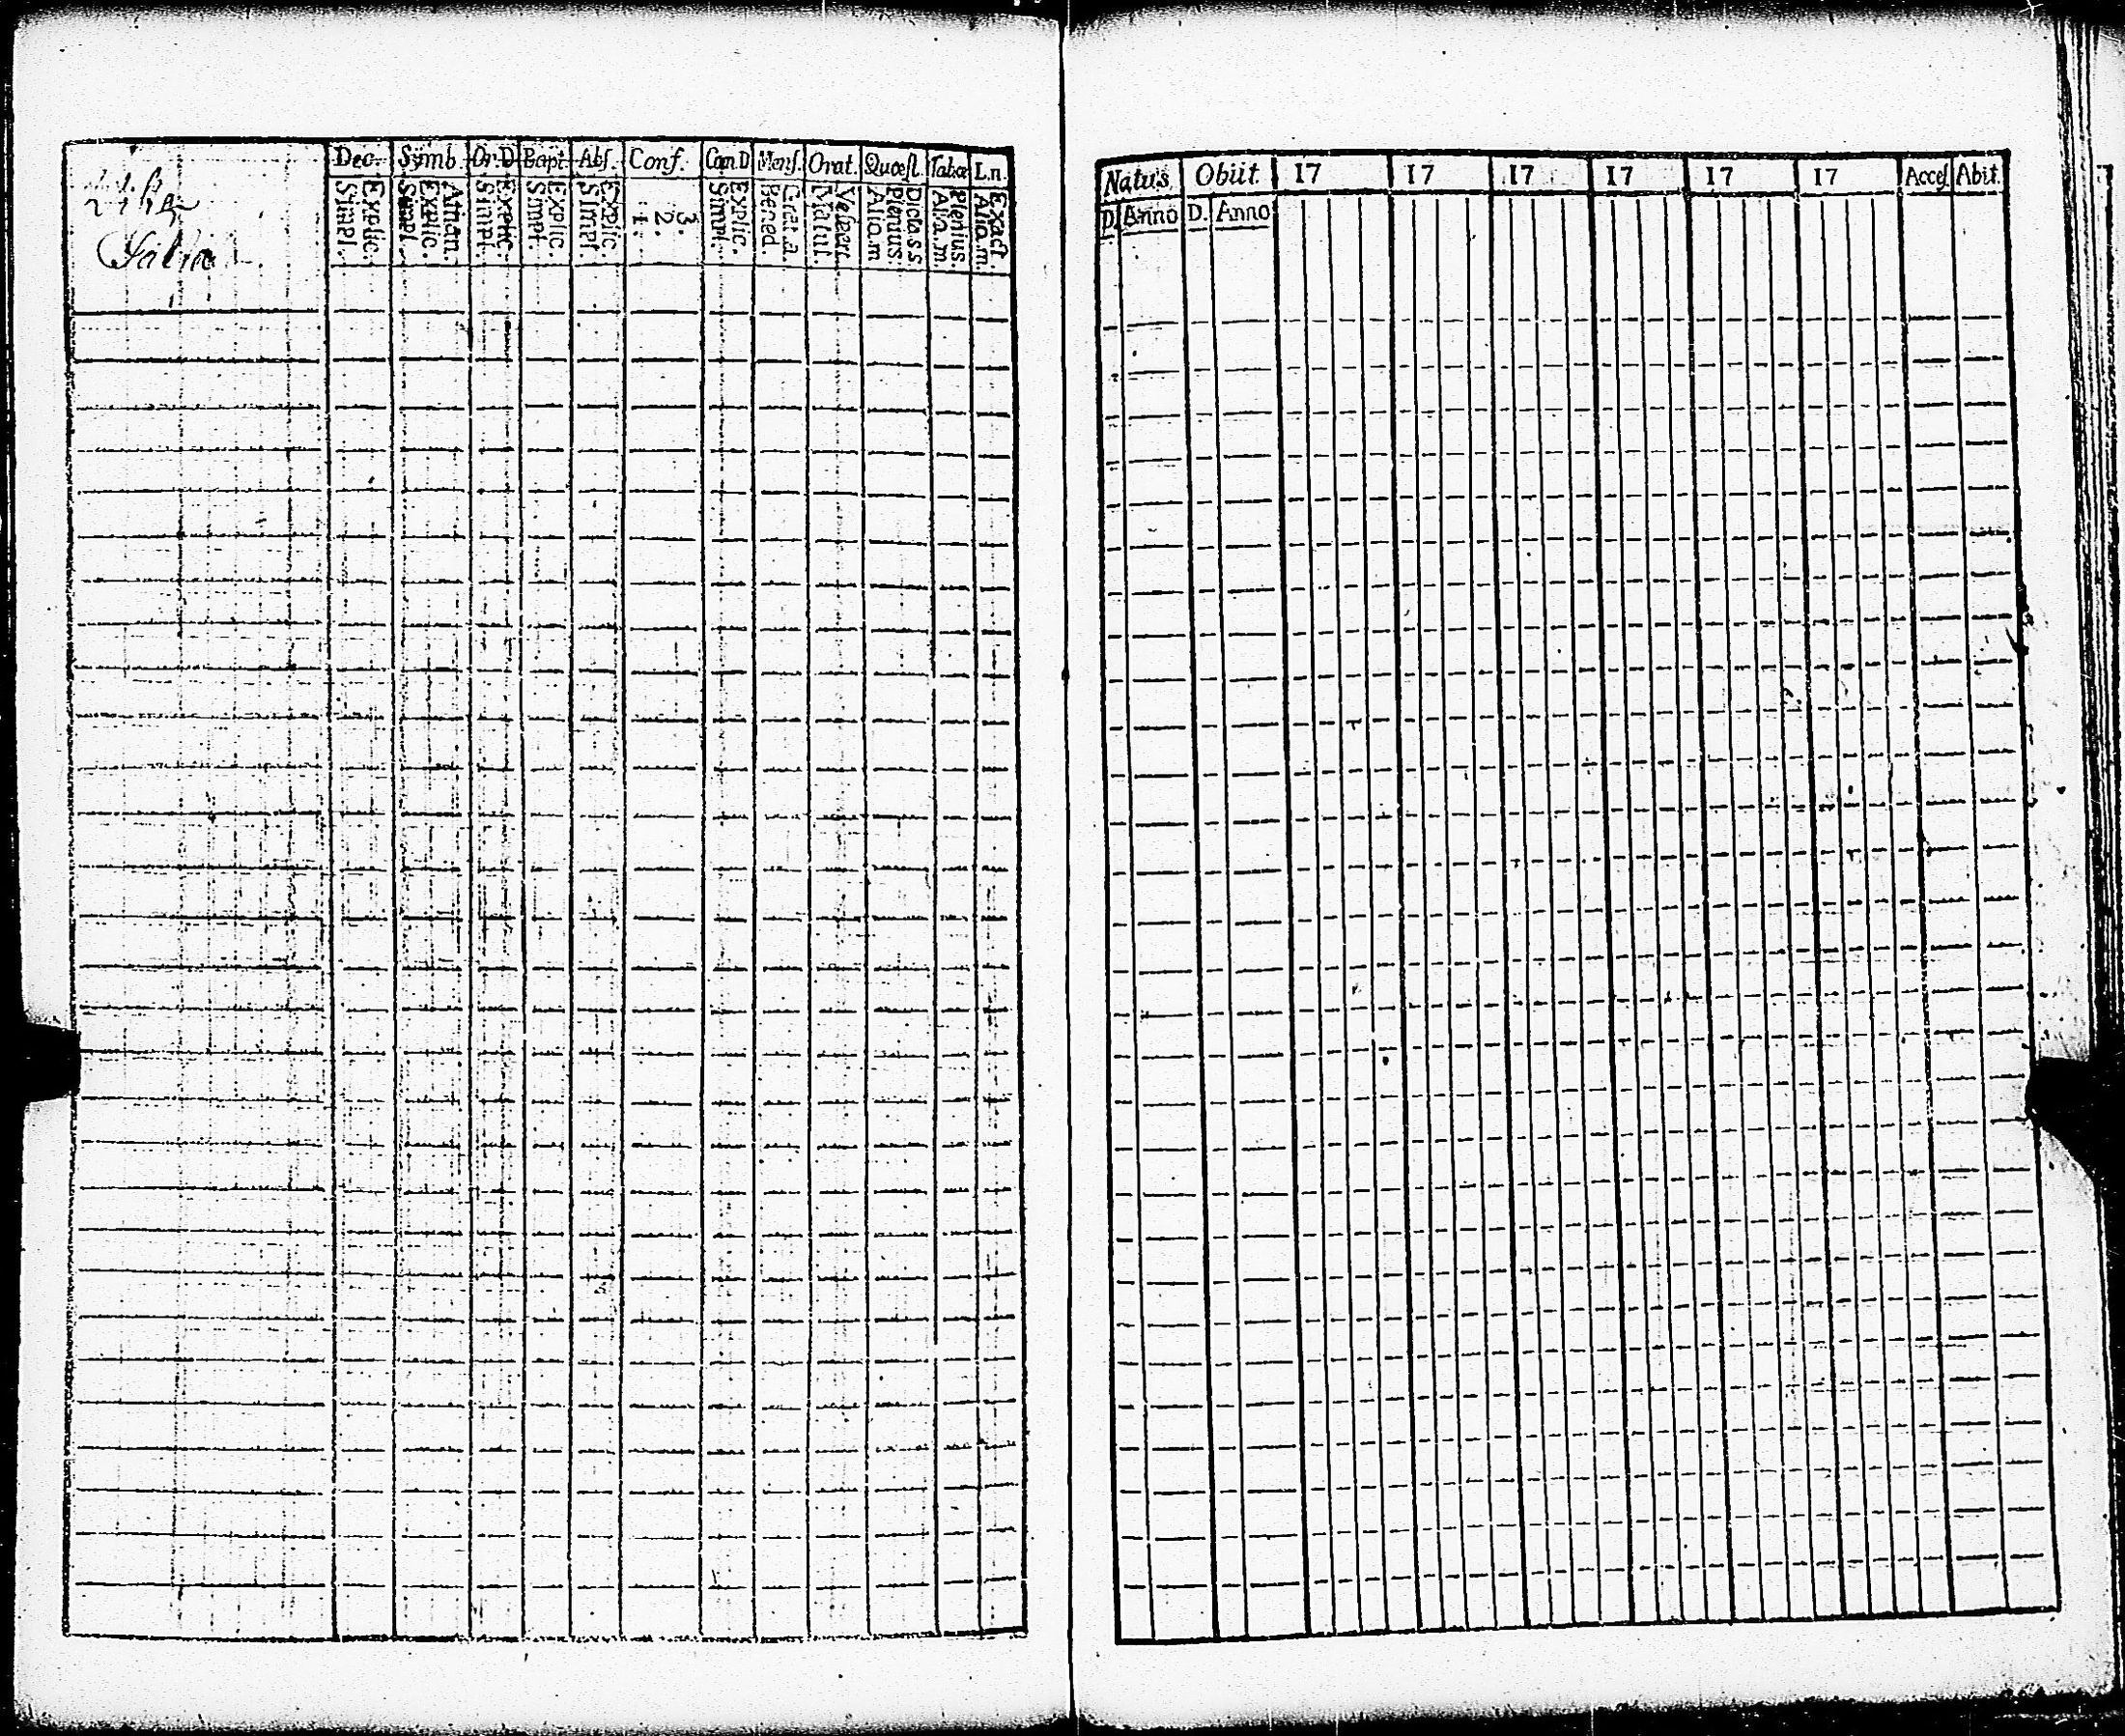 Dec. Symb. Or.D Bapt. Abſ. Conf. Cœn.D Menſ. Orat. Quæſt. Tabæ L.n.
Simpl. Explic. Simpl. Explic. Athan. Simpl. Explic. Simpl. Explic. Simpl. Explic. 1. 2. 3. Simpl. Explic. Bened. Grat.a. Matut. Veſpert. Aliq.m Plenius. Dicta.s.s Aliq.m. Plenius. Aliq.m. Exact.
Natus Obiit 17 17 17 17 17 17 Acceſ. Abit.
D. Anno D. Anno